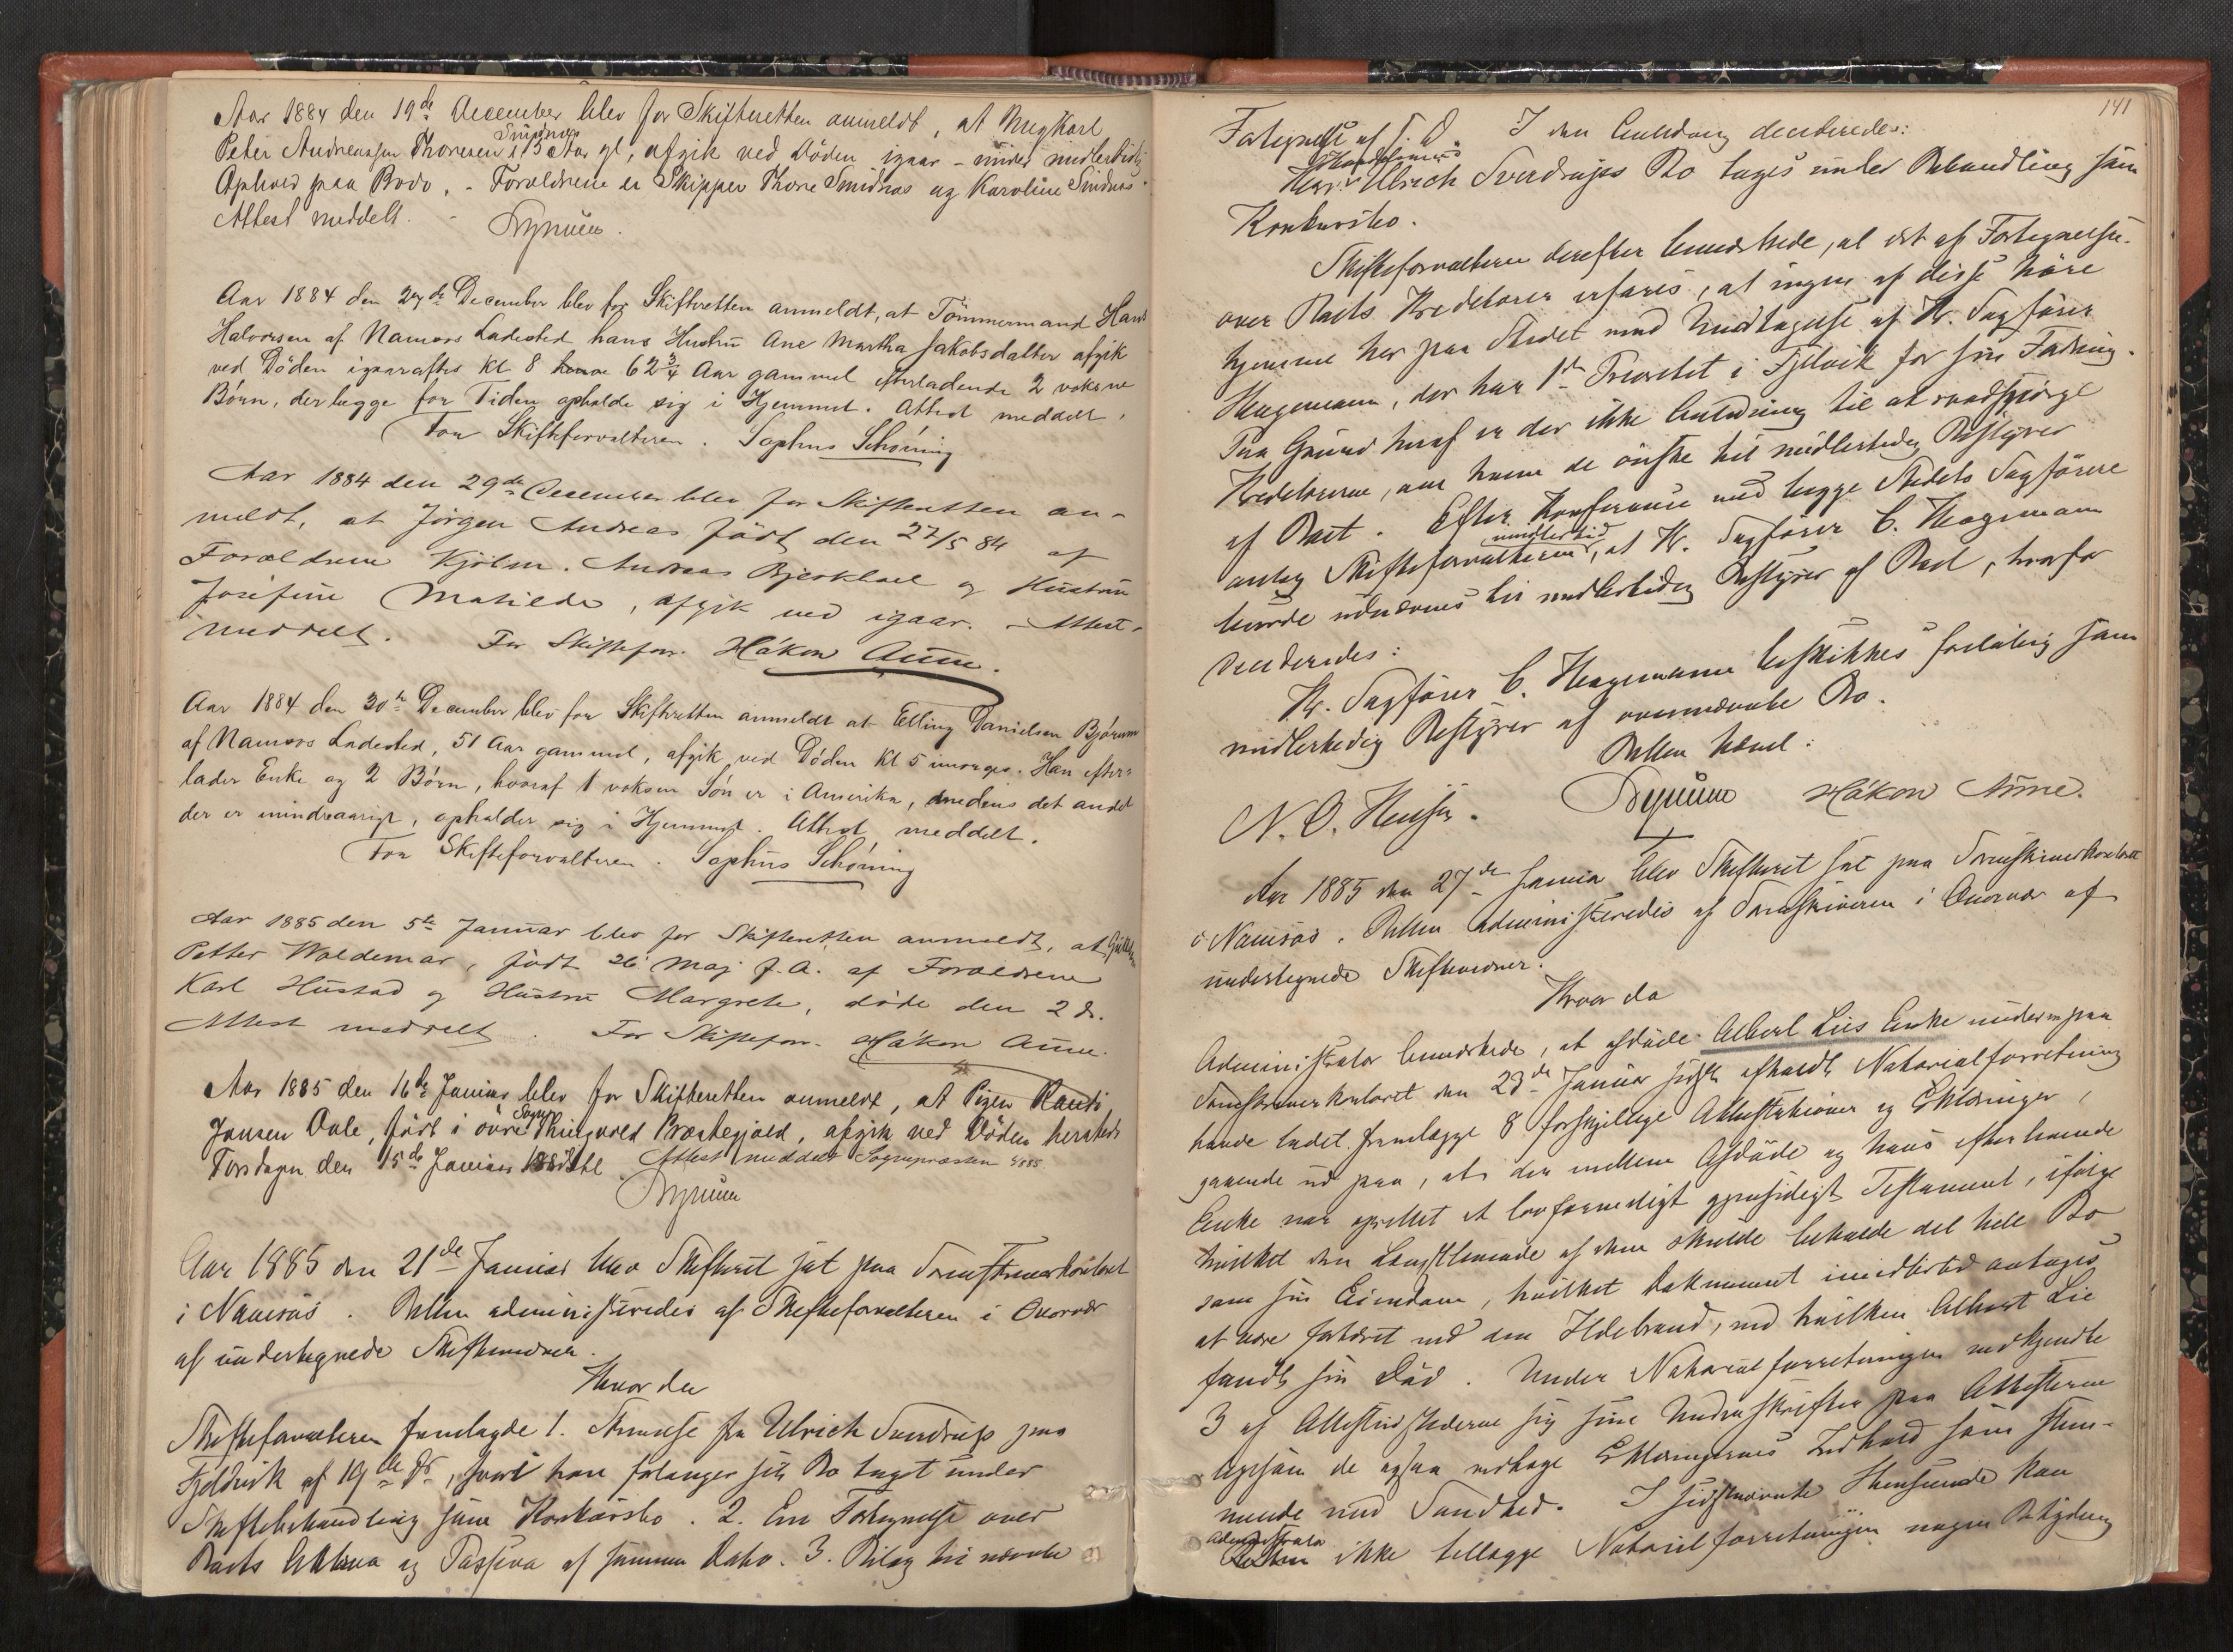 Aar 1884 den 19de December blev for Skifteretten anmeldt, at Ungkarl
Peter Andreassen Thoresen Smidnæs 13 Aar gl, afgik ved Döden igaar - under midlertidig
Ophold paa Bodø. - Forældrene er Skipper Thore Smidnæs og Karoline Smidnæs.
Attest meddelt.
Aar 1884 den 27de December blev for Skifteretten anmeldt, at Tömmermand Hans
Halvorsen af Namsos Ladested hans Hustru Ane Martha Jakobsdatter afgik
ved Döden igaaraftes Kl 8 62 3/4 Aar gammel efterladende 2 voksne
Börn, der begge for Tiden opholde sig i Hjemmet. Attest meddelt.
For Skifteforvalteren. Sophus Schöning
Aar 1884 den 29de December blev for Skifteretten an-
meldt, at Jörgen Andreas födt den 27/5 84 af
Forældrene Kjöbm. Andreas Bjerklael og Hustru
Josefine Matilde, afgik ved igaar. - Attest
meddelt. For Skiftefor. Håkon Aune.
Aar 1884 den 30te December blev for Skifteretten anmeldt at Elling Danielsen Bjørum
af Namsos Ladested, 51 Aar gammel, afgik ved Döden Kl 5 imorges. Han efter-
lader Enke og 2 Börn, hvoraf 1 voksen Sön er i Amerika, medens det andet
der er mindreaarigt, opholder sig i Hjemmet. Attest meddelt.
For Skifteforvalteren. Sophus Schöning
Aar 1885 den 5te Januar blev for Skifteretten anmeldt, at
Petter Waldemar, födt 26 Maj f.A. af Forældrene
Karl Hustad og Hustru Margrete, döde den 2 ds.
Attest meddelt. For Skiftefor. Håkon Aune.
Aar 1885 den 16de Januar blev for Skifteretten anmeldt, at Pigen Randi
Jonsen Dale, födt i övre Sogn Thingvold Præstegjæld, afgik ved Döden hersteds
Torsdagen den 15de Januar Attest meddelt Sognepræsten
Aar 1885 den 21de Januar blev Skifteret sat paa Sorenskriverkontoret
i Namsos. Retten administreredes af Skifteforvalteren i Overvær
af undertegnede Skiftevidner.
Hvor da
Skifteforvalteren fremlagde 1. Skrivelse fra Ulrich Sverdrup paa
Fjeldvik af 19de ds, hvori han forlanger sit Bo taget under
Skiftebehandling som Konkursbo. 2. En Fortegnelse over
Boets Aktiva og Passiva af samme Dato. 3. Bilag til nævnte
141
Fortegnelse af S. D. I den Anledning decideredes:
Handelsmand Ulrich Sverdrups Bo tages under Behandling som
Konkursbo.
Skifteforvalteren derefter bemærkede, at det af Fortegnelsen
over Boets Kreditorer erfares, at ingen af disse höre
hjemme her paa Stedet med Undtagelse af Hr. Sagförer
Hagemann, der har 1ste Prioritet i Fjelvik for sin Fordring.
Paa Grund heraf er der ikke Anledning til at raadspörge
Kreditorerne, om hvem de önske til midlertidig Bestyrer
af Boet. Efter Konferance med begge Stedets Sagförere
antog Skifteforvalteren imidlertid, at Hr. Sagförer C. Hagemann
burde udnævnes til midlertidig Bestyrer af Boet, hvorfor
decideredes:
Hr. Sagförer C. Hagemann beskikkes forlöbig som
midlertidig Bestyrer af ovennævnte Bo.
Retten hævet:
N. O. Håkon Aune.
Aar 1885 den 27de Januar blev Skifteret sat paa Sorenskriverkontoret
i Namsos. Retten administreredes af Sorenskriveren i Overvær af
undertegnede Skiftevidner.
Hvor da
Administrator bemærkede, at afdöde Albert Lies Enke under en paa
Sorenskriverkontoret den 23de Januar sidstl. afholdt Notarialforretning
havde ladet fremlægge 8 forskjellige Attestationer og Erklæringer,
gaaende ud paa, at der mellem Afdöde og hans efterlevende
Enke var oprettet et lovformeligt gjensidigt Testament, ifölge
hvilket den Længstlevende af dem skulde beholde det hele Bo
som sin Eiendom, hvilket Dokument imidlertid antages
at være fortæret ved den Ildebrand, ved hvilken Albert Lie
fandt sin Död. Under Notarialforretningen vedkjendte
3 af Attestudstederne sig sine Underskrifter paa Attesterne
ligesom de ogsaa vedtoge Erklæringernes Indhold som stem-
mende med Sandhed. I sidstnævnte Henseende kan
Administrator ikke tillægge Notarialforretningen nogen Betydning